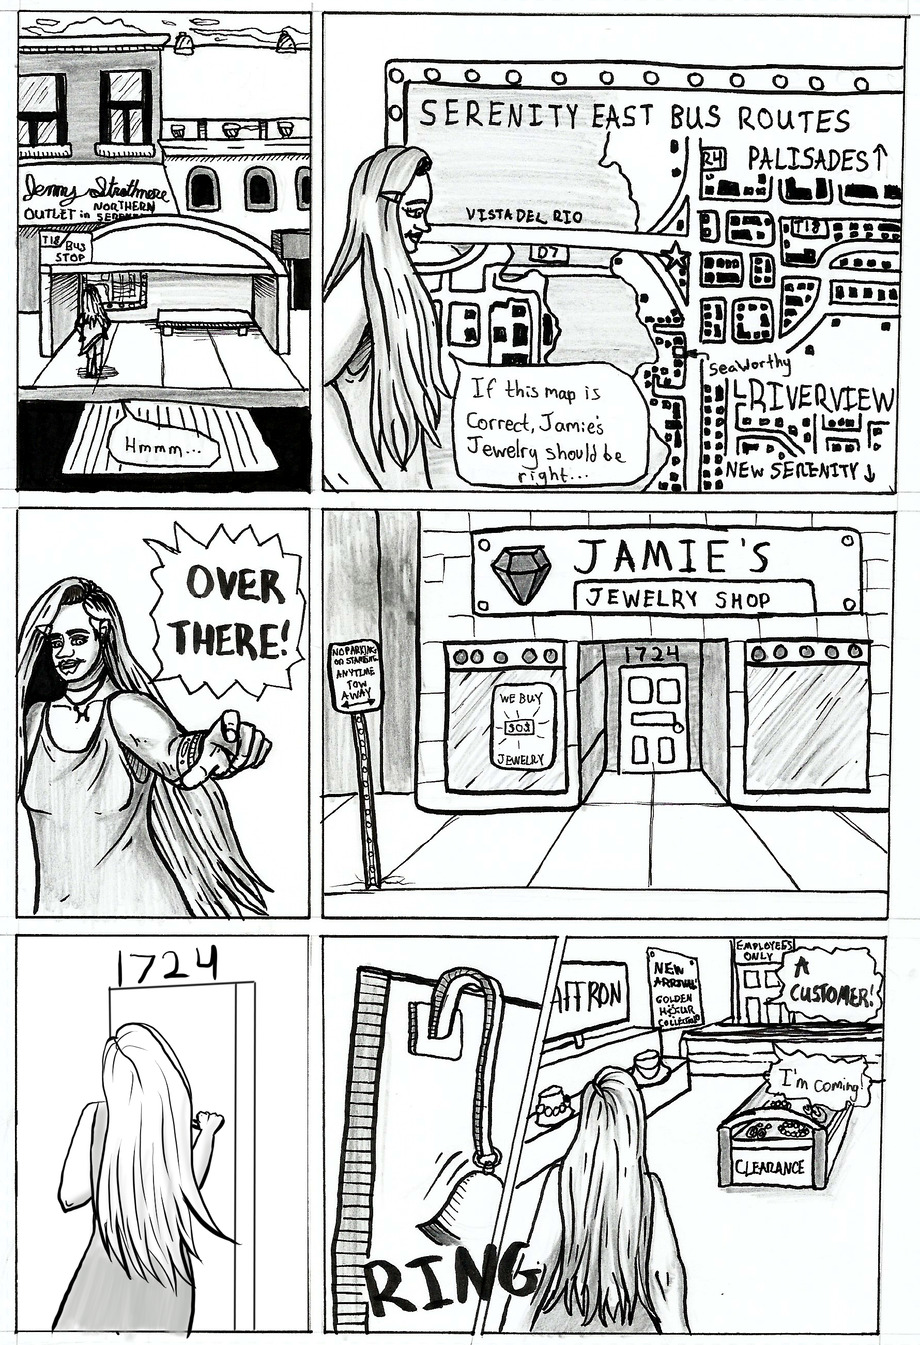 Jenny Strathmore
OUTLET in NORTHERN
T18 BUS
STOP
Hmmm...
SERENITY EAST BUS ROUTES
R4 PALISADES↑
VISTA DEL RIO
T18
D7
Seaworthy
RIVERVIEW
NEW SERENITY ↓
If this map is
Correct, Jamie's
Jewelry should be
right...
OVER
THERE!
JAMIE'S
JEWELRY SHOP
NO PARKING
OR STANDING
ANYTIME
TOW
AWAY
1724
WE BUY
JEWELRY
1724
RING
AFFRON
NEW
ARRIVAL
GOLDEN
HOUR
COLLECTION
EMPLOYEES
ONLY
A
CUSTOMER!
I'm Coming!
CLEARANCE